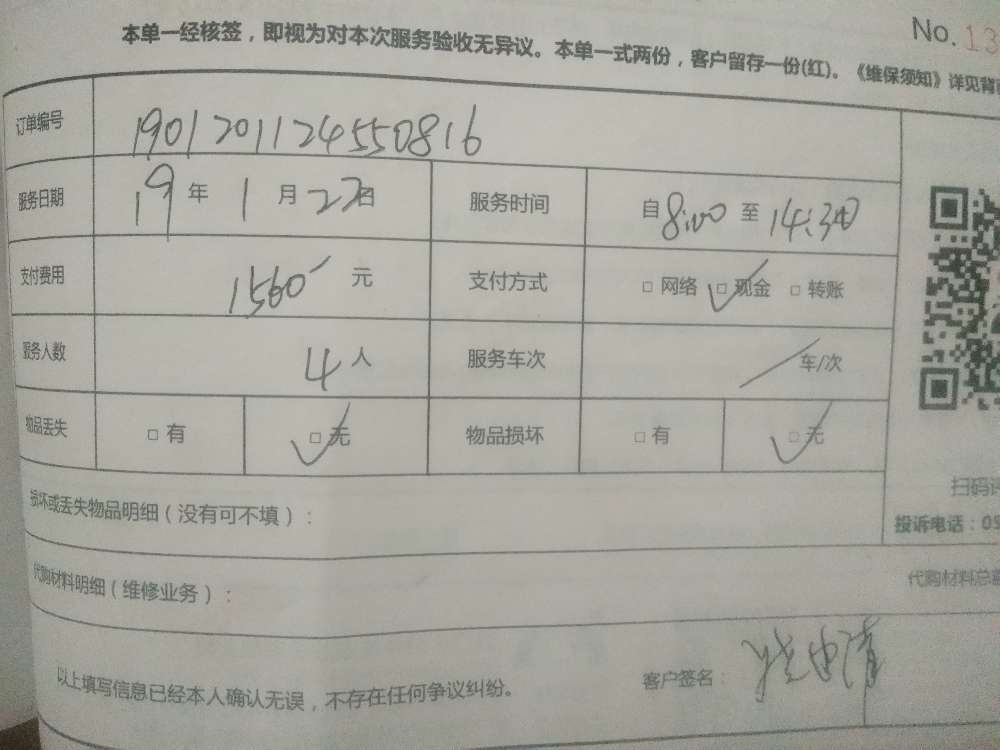 No. 13
本单一经核签，即视为对本次服务验收无异议。本单一式两份，客户留存一份(红)。《维保须知》详见背
订单编号 1901201124550816
服务日期 19年 1月 22日 服务时间 自8:00至14:30
支付费用 1560元 支付方式 □网络 □现金 □转账
服务人数 4人 服务车次 车/次
物品丢失 □有 □无 物品损坏 □有 □无
损坏或丢失物品明细（没有可不填）：
扫码
投诉电话：05
代购材料明细（维修业务）：
代购材料总
以上填写信息已经本人确认无误，不存在任何争议纠纷。 客户签名：